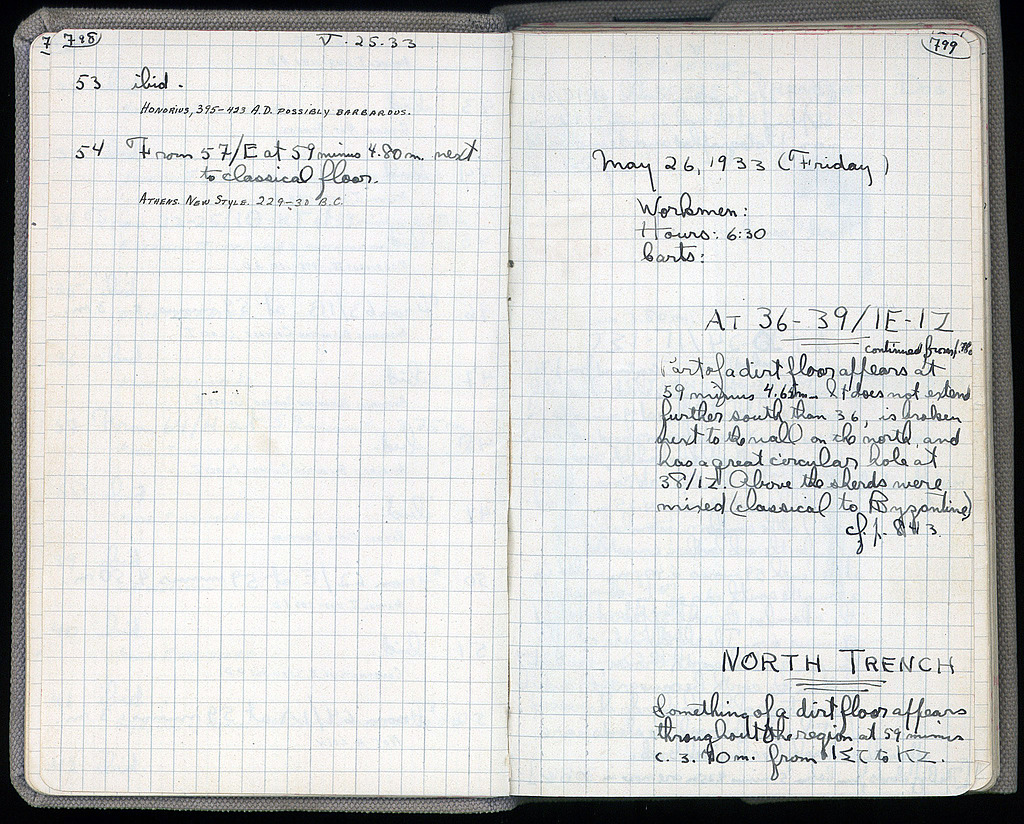 798
V. 25. 33
53 ibid.
HONORIUS, 395-423 A.D. POSSIBLY BARBAROUS.
54 From 57/E at 59 minus 4.80 m. next
to classical floor.
ATHENS. NEW STYLE. 229-30 B.C.
799
May 26, 1933 (Friday)
Workmen:
Hours: 6:30
Carts:
AT 36-39/IE-IZ
continued from p.
Part of a dirt floor appears at
59 minus 4.65m. It does not extend
further south than 36, is broken
next to the wall on the north, and
has a great circular hole at
38/IZ. Above the sherds were
mixed (classical to Byzantine)
cf. p. 843.
NORTH TRENCH
Something of a dirt floor appears
throughout the region at 59 minus
c. 3.70m. from to KZ.